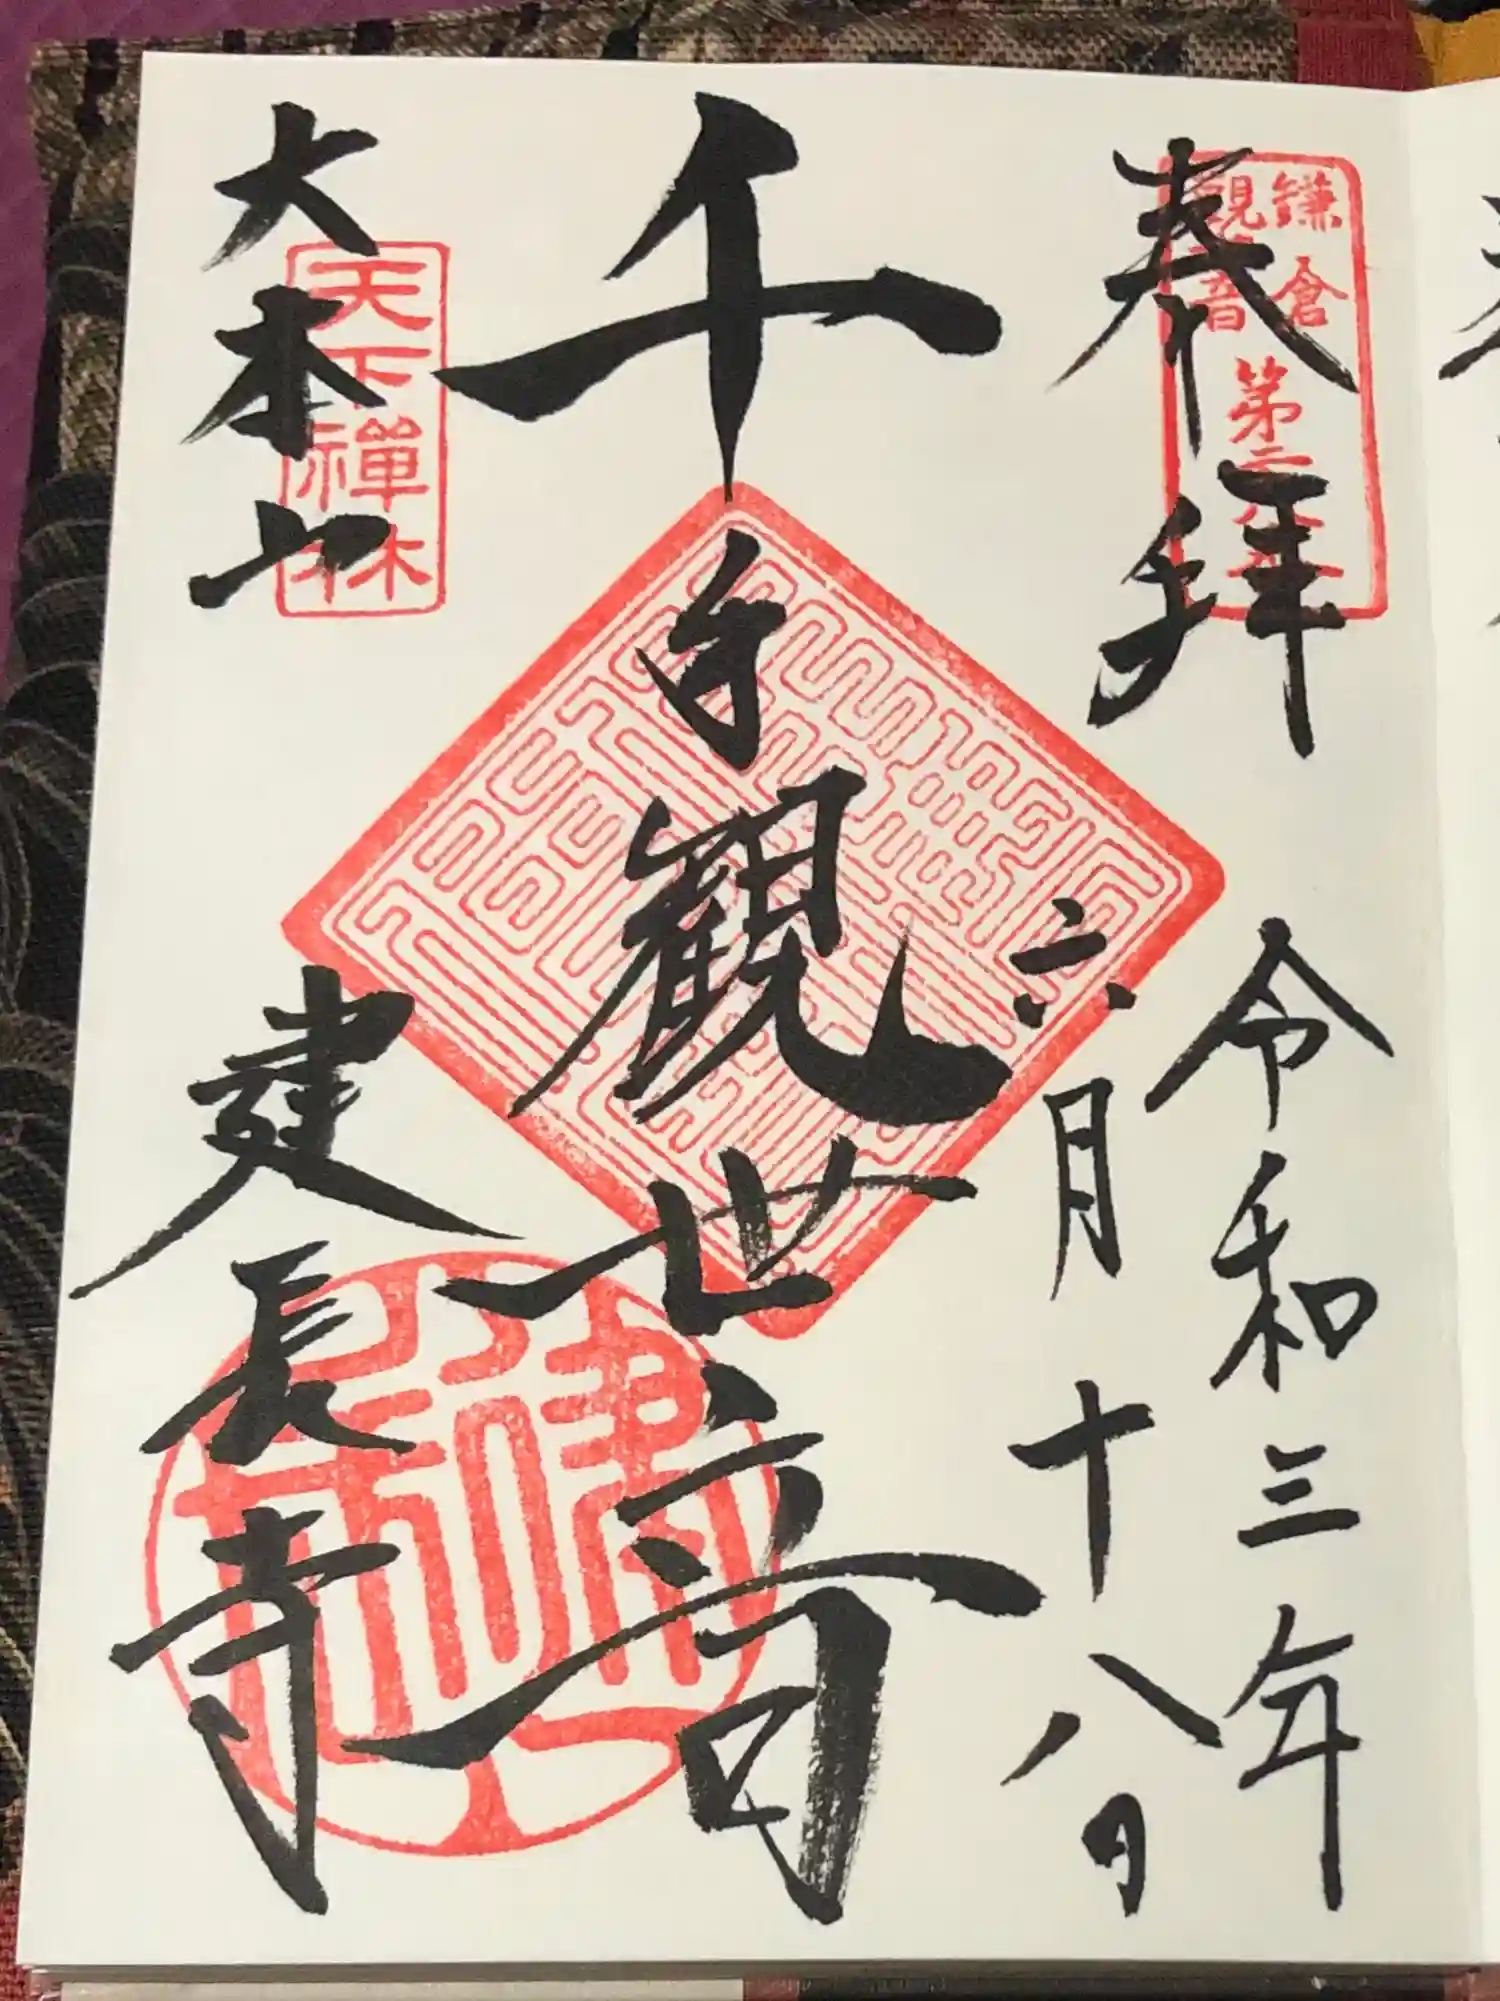 奉拝
令和三年
六月十八日
千手観世音
大本山
建長寺
鎌倉
観音
第二十八番
天下禪林